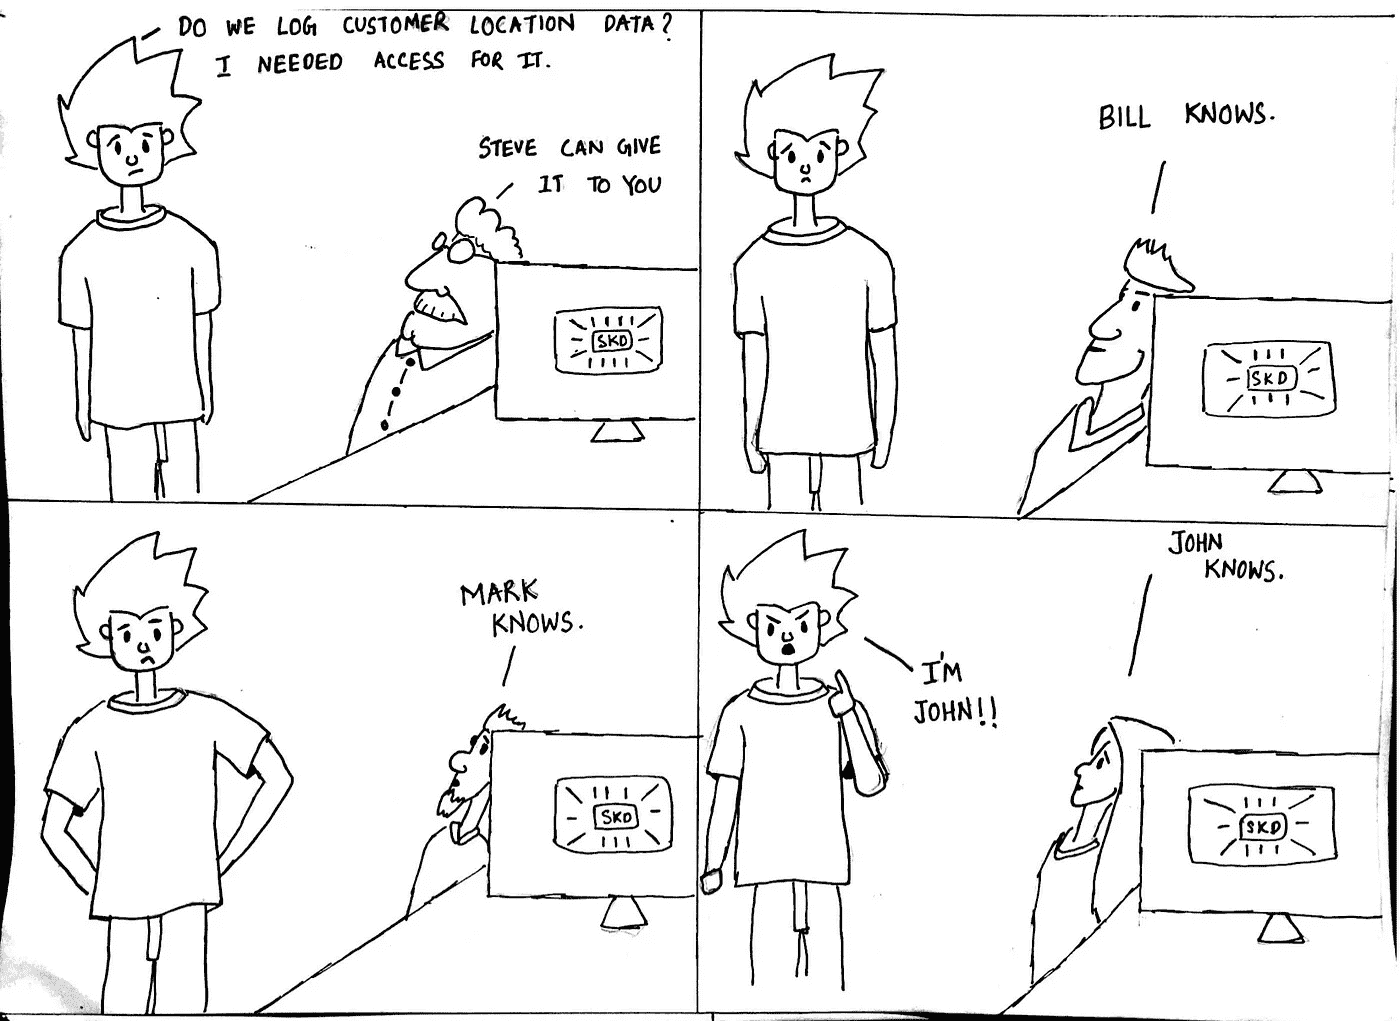 DO WE LOG CUSTOMER LOCATION DATA?
I NEEDED ACCESS FOR IT.
STEVE CAN GIVE
IT TO YOU
SKD
BILL KNOWS.
SKD
MARK
KNOWS.
SKD
JOHN
KNOWS.
I'M
JOHN!!
SKD